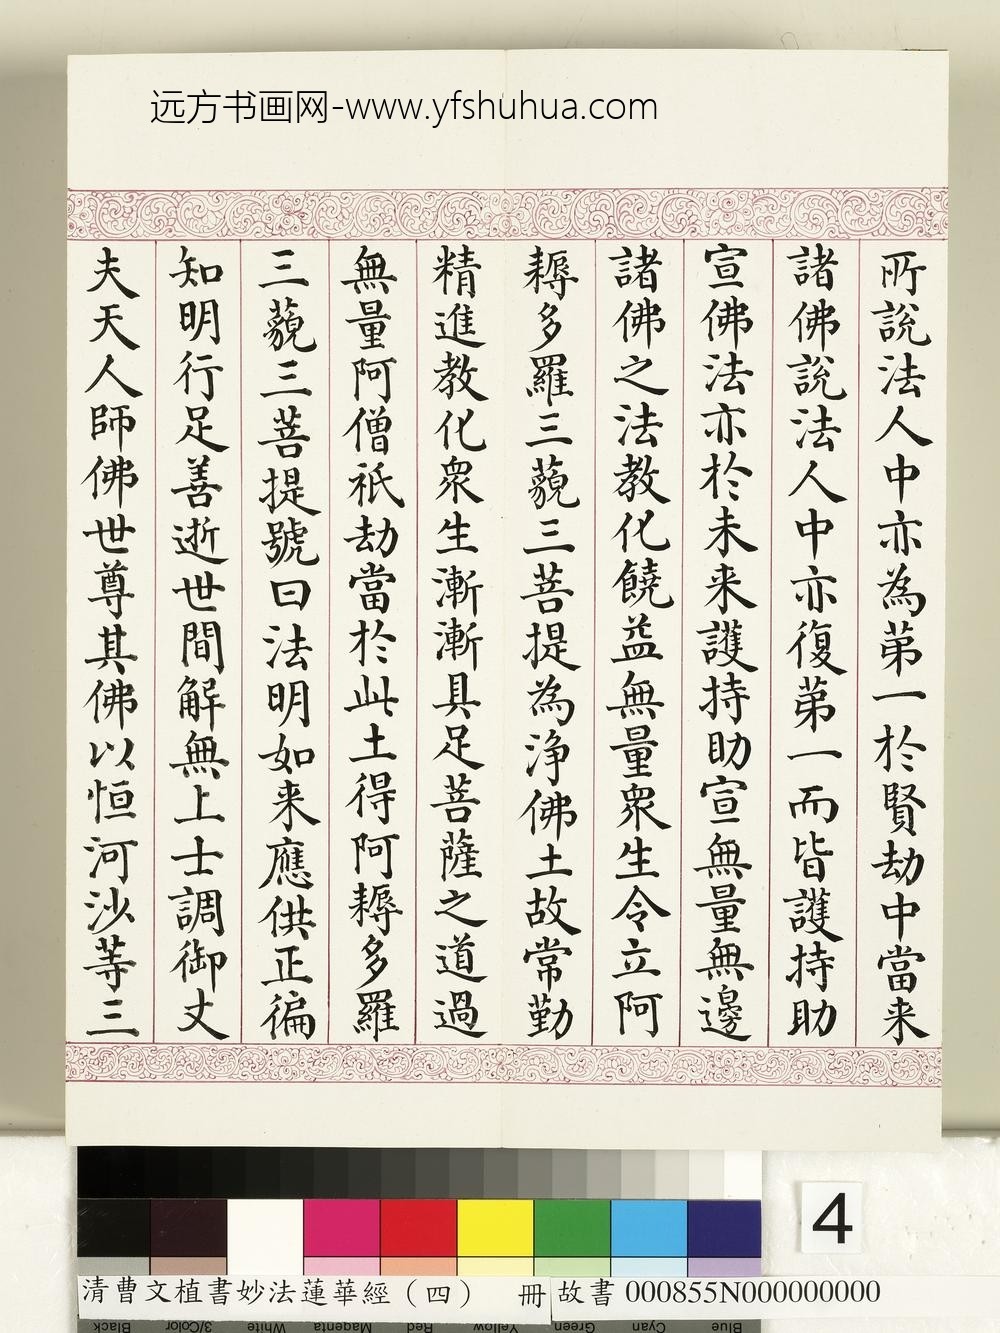 远方书画网-www.yfshuhua.com
所說法人中亦為第一於賢劫中當来
諸佛說法人中亦復第一而皆護持助
宣佛法亦於未来護持助宣無量無邊
諸佛之法教化饒益無量衆生令立阿
耨多羅三藐三菩提為淨佛土故常勤
精進教化衆生漸漸具足菩薩之道過
無量阿僧祇劫當於此土得阿耨多羅
三藐三菩提號曰法明如来應供正徧
知明行足善逝世間解無上士調御丈
夫天人師佛世尊其佛以恒河沙等三
4
清曹文植書妙法蓮華經（四） 冊 故書 000855N000000000
Black 3/Color White Magenta Red Yellow Green Cyan Blue